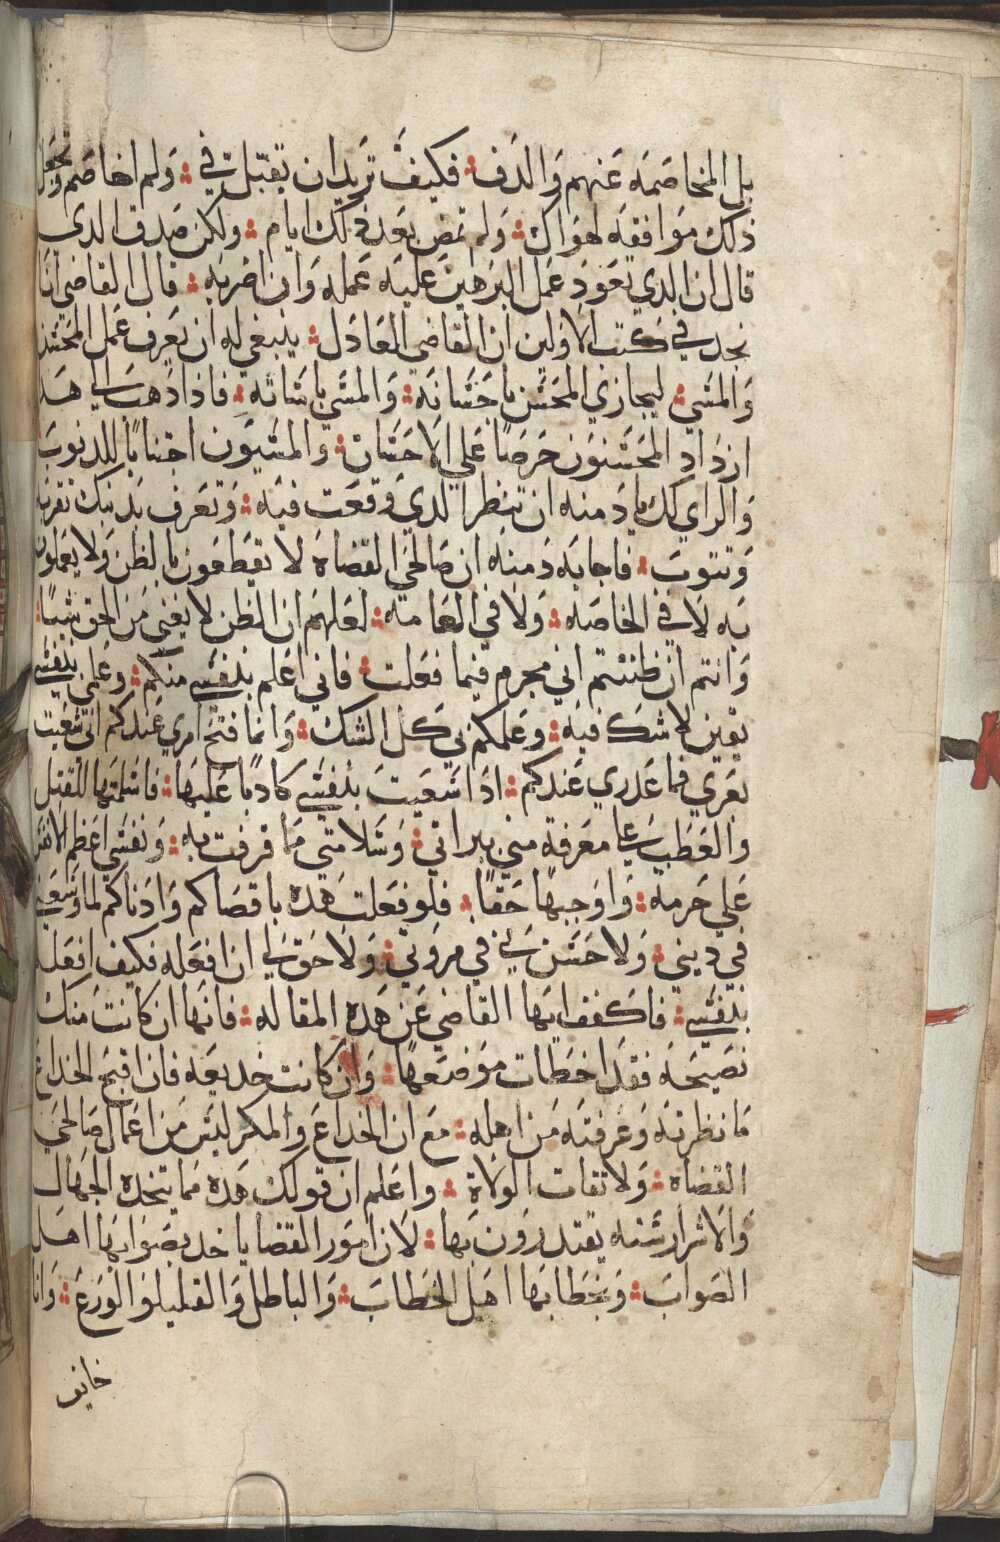 بل المخاصمه عنهم والدف ؞ فكيف تريد ان تقتلني ؞ ولم اخاصم وتجعل
ذلك موافقه لهواك ؞ ولم تمض بعد ذلك ايام ؞ ولكن صدق الدى
قال ان الدي تعود عمل البر هين عليه عمله وان اضر به ؞ قال القاضي انا
نجد في كتب الاولين ان القاضي العادل ؞ ينبغي له ان يعرف عمل المحسن
والمسي ؞ ليجازي المحسن باحسانه ؞ والمسي باساته ؞ فاذا ذهب الي هدا
ازداد المحسنون حرصا علي الاحسان ؞ والمسيون اجتنابا للدنوب
والراي لك يا دمنه ان تنظر الدي وقعت فيه ؞ وتعرف بدنبك تقر به
وتتوب ؞ فاجابه دمنه ان صالحي القضاة لا يقطعون بالظن ولا يعملون
به لا في الخاصه ؞ ولا في العامه ؞ لعلهم ان الظن لا يغني من الحق شيا ؞
وانتم ان ظننتم اني مجرم فيما فعلت ؞ فاني اعلم بنفسي منكم ؞ وعلمي بنفسي
يقين لا شك فيه ؞ وعلمكم بي كل الشك ؞ وانما قبح امري عندكم اني سعيت
بغيري فما عدري عندكم ؞ ادا سعيت بنفسي كادبا عليها ؞ فاسلمتها للقتل
والعطب علي معرفة مني ببراتي ؞ وسلامتي مما قرفت به ؞ ونفسي اعظم الانفس
علي حرمه ؞ واوجبها حقا ؞ فلو فعلت هده باقصاكم وادناكم لما وسعني
في ديني ؞ ولا حسن بي في مروتي ؞ ولا حق لي ان افعله فكيف افعله
بنفسي ؞ فاكفف ايها القاضي عن هده المقاله ؞ فانها ان كانت منك
نصيحه فقد اخطات موضعها ؞ وان كانت خديعه فان اقبح الخداع
ما نظرته وعرفته من اهله ؞ مع ان الخداع والمكر ليس من اعمال صالحي
القضاه ؞ ولا ثقات الولاة ؞ واعلم ان قولك هده مما يتخده الجهال
والاشرار سنه يقتدرون بها ؞ لان امور القضا ياخد بصوابها اهل
الصواب ؞ وبخطابها اهل الخطاب ؞ والباطل والقليلو الورع ؞ وانا
خايف